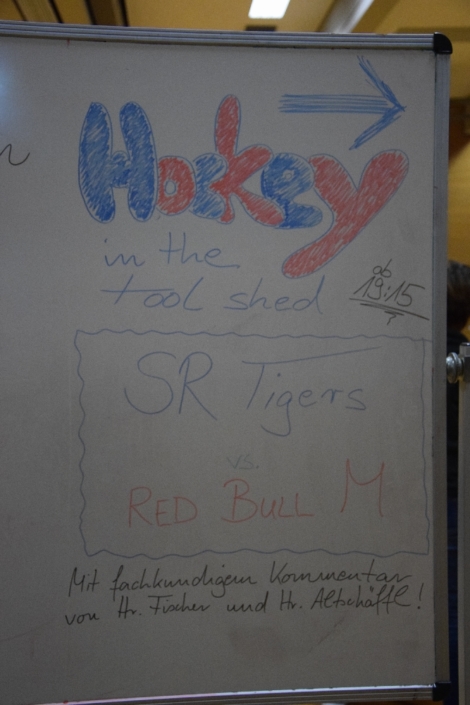 Hockey
in the
tool shed
ab
19:15
?
SR Tigers
vs.
RED BULL M
Mit fachkundigem Kommentar
von Hr. Fischer und Hr. Altschäffl!